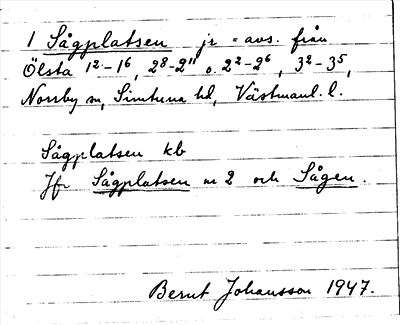 1 Sågplatsen jr = avs. från
Ölsta 1²-1⁶, 2⁸-2¹¹ o. 2²-2⁶, 3²-3⁵,
Norrby sn, Simtuna hd, Västmanl. l.
Sågplatsen kb
Jfr Sågplatsen nr 2 och Sågen.
Bernt Johansson 1947.